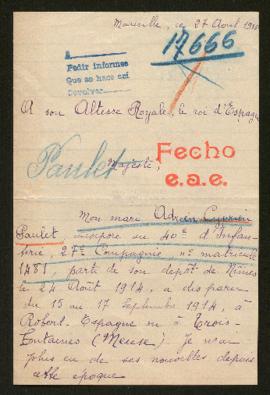 Marseille, ce 27 Août 191
17666
A
Pedir informes
Que se hace así
Devolver
A son Altesse Royale, le roi d'Espagne
Paulet
Majesté,
Fecho
e.a.e.
Mon mari Adrien Cyprien
Paulet, incorporé au 40e d'Infan-
terie, 27e Compagnie, n° matricule
1481, parti de son dépôt de Nîmes
le 24 Août 1914, a disparu
du 15 au 17 Septembre 1914, à
Robert-Espagne ou à Trois-
Fontaines (Meuse). Je n'ai
plus eu de ses nouvelles depuis
cette époque